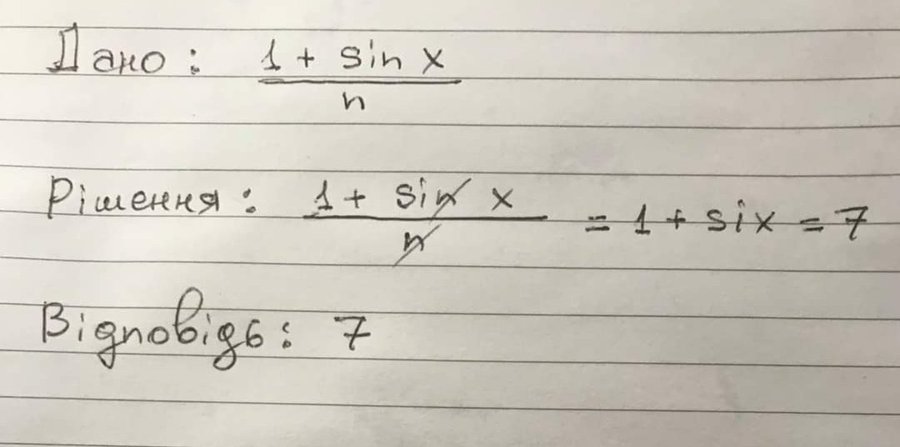 Дано: (1 + sin x) / n
Рішення: (1 + sin x) / n = 1 + six = 7
Відповідь: 7